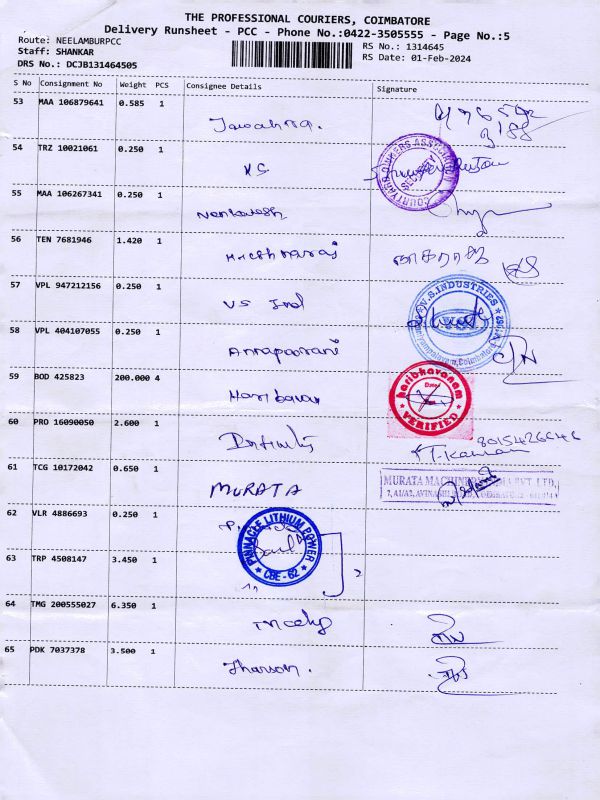 THE PROFESSIONAL COURIERS, COIMBATORE
Delivery Runsheet - PCC - Phone No.:0422-3505555 - Page No.:5
Route: NEELAMBURPCC
RS No.: 1314645
Staff: SHANKAR
RS Date: 01-Feb-2024
DRS No.: DCJB131464505
S No Consignment No Weight PCS Consignee Details Signature
53 MAA 106879641 0.585 1
54 TRZ 10021061 0.250 1
KG
COURTYARD OWNERS ASSOCIATION
SECURITY
55 MAA 106267341 0.250 1
Venkatesh
56 TEN 7681946 1.420 1
நாகராஜ
57 VPL 947212156 0.250 1
VS Ind
V.S.INDUSTRIES
58 VPL 404107055 0.250 1
Annapoorani
C/N
59 BOD 425823 200.000 4
Haribavan
haribhavanam
Date
VERIFIED
60 PRO 16090050 2.600 1
8015426646
T.Kannan
61 TCG 10172042 0.650 1
MURATA
MURATA MACHINERY INDIA PVT. LTD.
62 VLR 4886693 0.250 1
PINNACLE LITHIUM POWER
CBE - 62
63 TRP 4508147 3.450 1
2
64 TMG 200555027 6.350 1
65 PDK 7037378 3.500 1
Tharson.